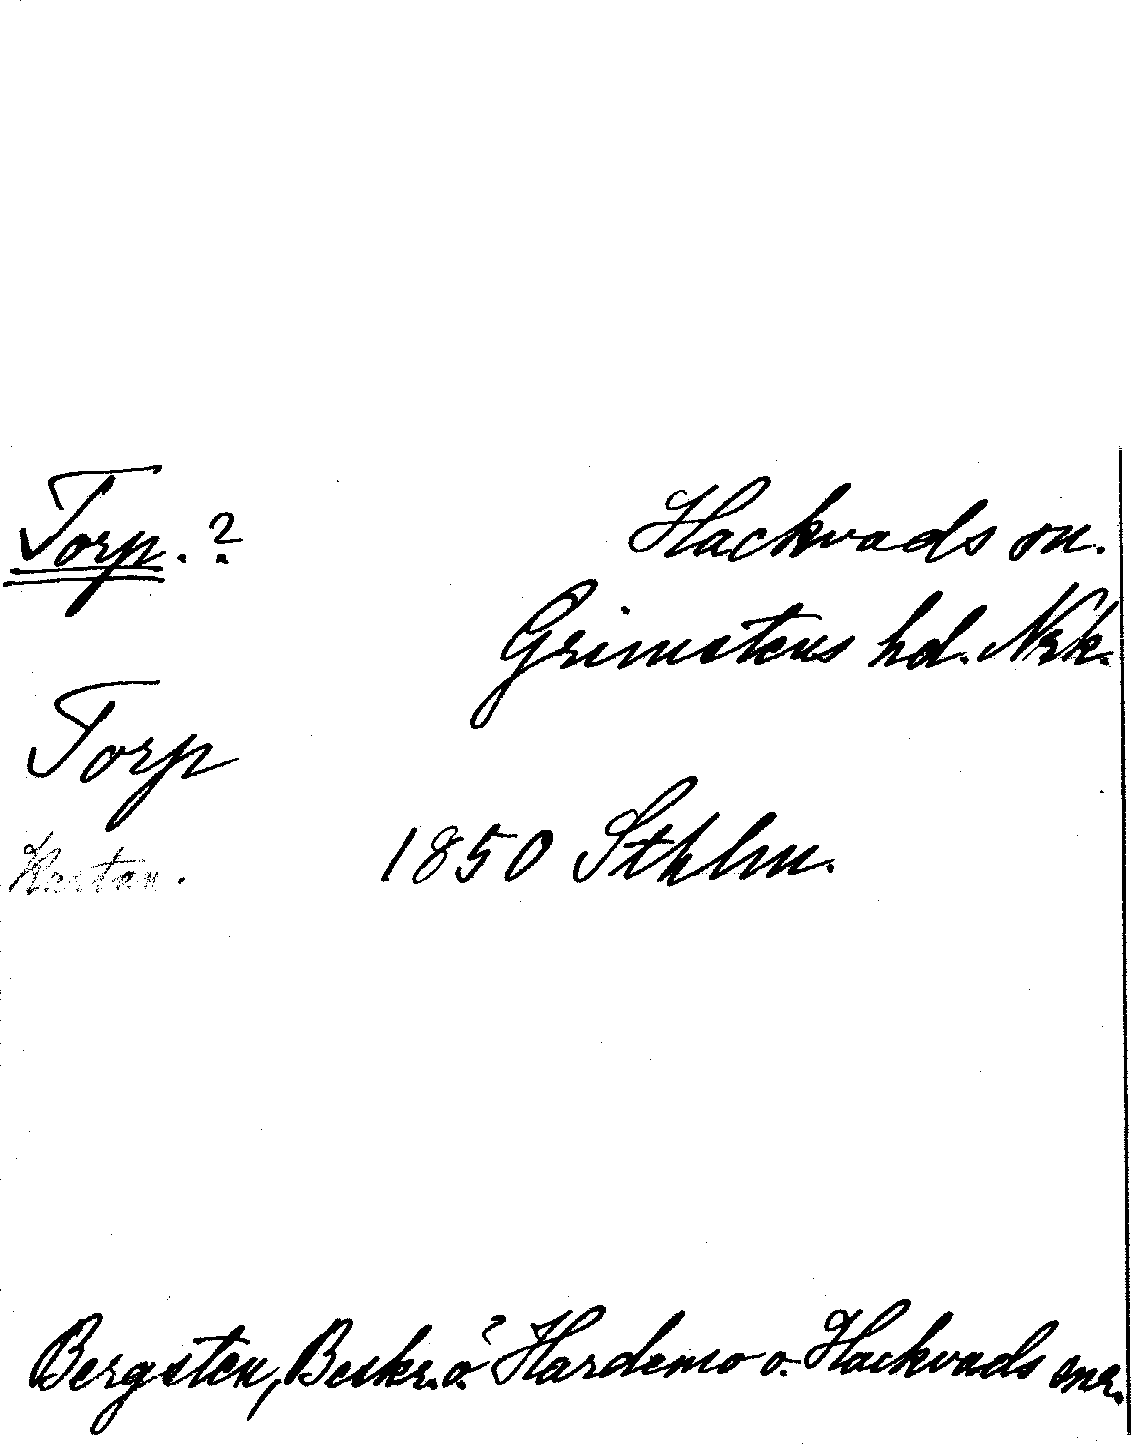 Torp. ?
Hackvads sn.
Grimstens hd. Nrk.
Torp
Kartan. 1850 Sthlm.
Bergsten, Beskr. ö. Hardemo o. Hackvads snr.